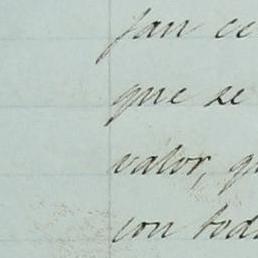 fan ce
que se
valor, qu
con toda